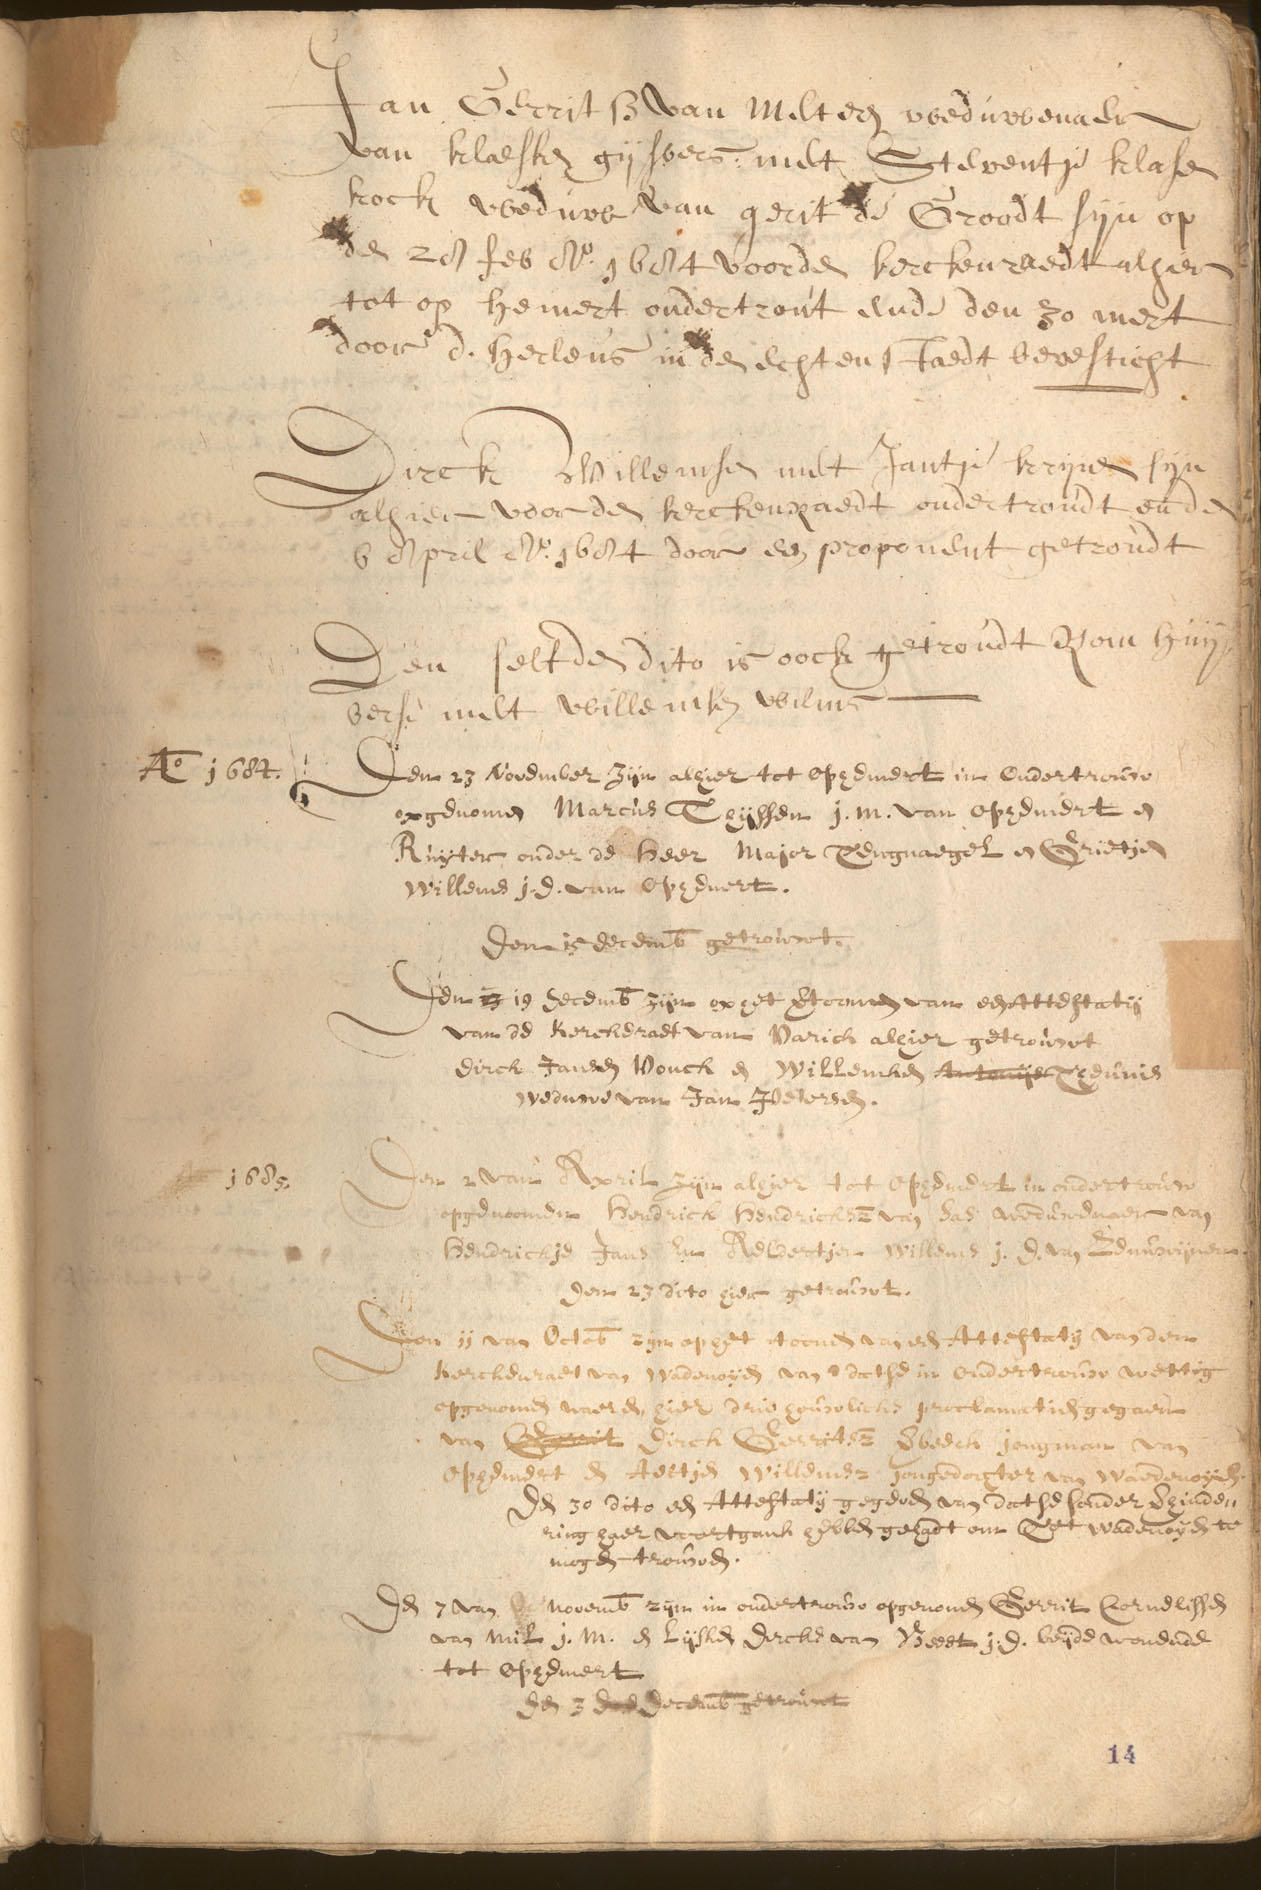 Jan Gerritß van Meteren weduwenaer
van klaesken gijsbers: met Steventje klasen
kock weduwe van gerit de Groodt sijn op
den 28 feb Aº. 1684 voorden kerckenraedt alhier
tot op hemert ondertrout ende den 30 mert
door d. Herleus in den echten staedt bevesticht
Dirck Willemsen met Jantje krijnen sijn
alhier voor den kerckenraedt ondertroudt en den
6 April Aº. 1684 door een proponent getroudt
Den selfden dito is oock getroudt Rom huij
berse met willemken wilms
Aº 1684. Den 23 November zijn alhier tot Ophemert in Ondertrouw
opgenomen Marcus Thijssen j.m. van Ophemert en
Ruijter onder de Heer Major Tengnaegel en Grietjen
Willems j.d. van Ophemert.
Den 15 decemb getrouwt.
Den 19 decemb zijn op het thoonen van een Attestatij
van de Kerckeraet van Varick alhier getrouwt
Dirck Jansen Vonck en Willemken Antonijs Theunis
Weduwe van Jan Petersen.
1685. Den 2 van April zijn alhier tot Ophemert in ondertrouw
opgenoomen Hendrick Hendricksz van Las weduwenaer van
Hendrickje Jans en Aeldertjen Willems j.d. van Leuwijnen.
Den 23 dito hier getrouwt.
Den 11 van Octob zijn op het toonen van een Attestatij van den
Kerckenraet van Wadenoijen van datse in Ondertrouw wettig
opgenomen waeren, hier drie houwlicks proclamatien gegaen
van Gerrit Dirck Gerritsz Sbeeck jongman van
Ophemert en Aertjen Willemsz jongedochter van Waedenoijen.
Den 30 dito een Attestatij gegeven van datse sonder verhinde,,
ring haer voortganck hebben gehadt om Tot Wadenoijen te
mogen trouwen.
Den 7 van Novemb zijn in ondertrouw opgenomen Gerrit Cornelissen
van Mil j.m. en Lijsken Dercks van Heest j.d. beijde wonende
tot Ophemert
Den 3 Decemb getrouwt
14